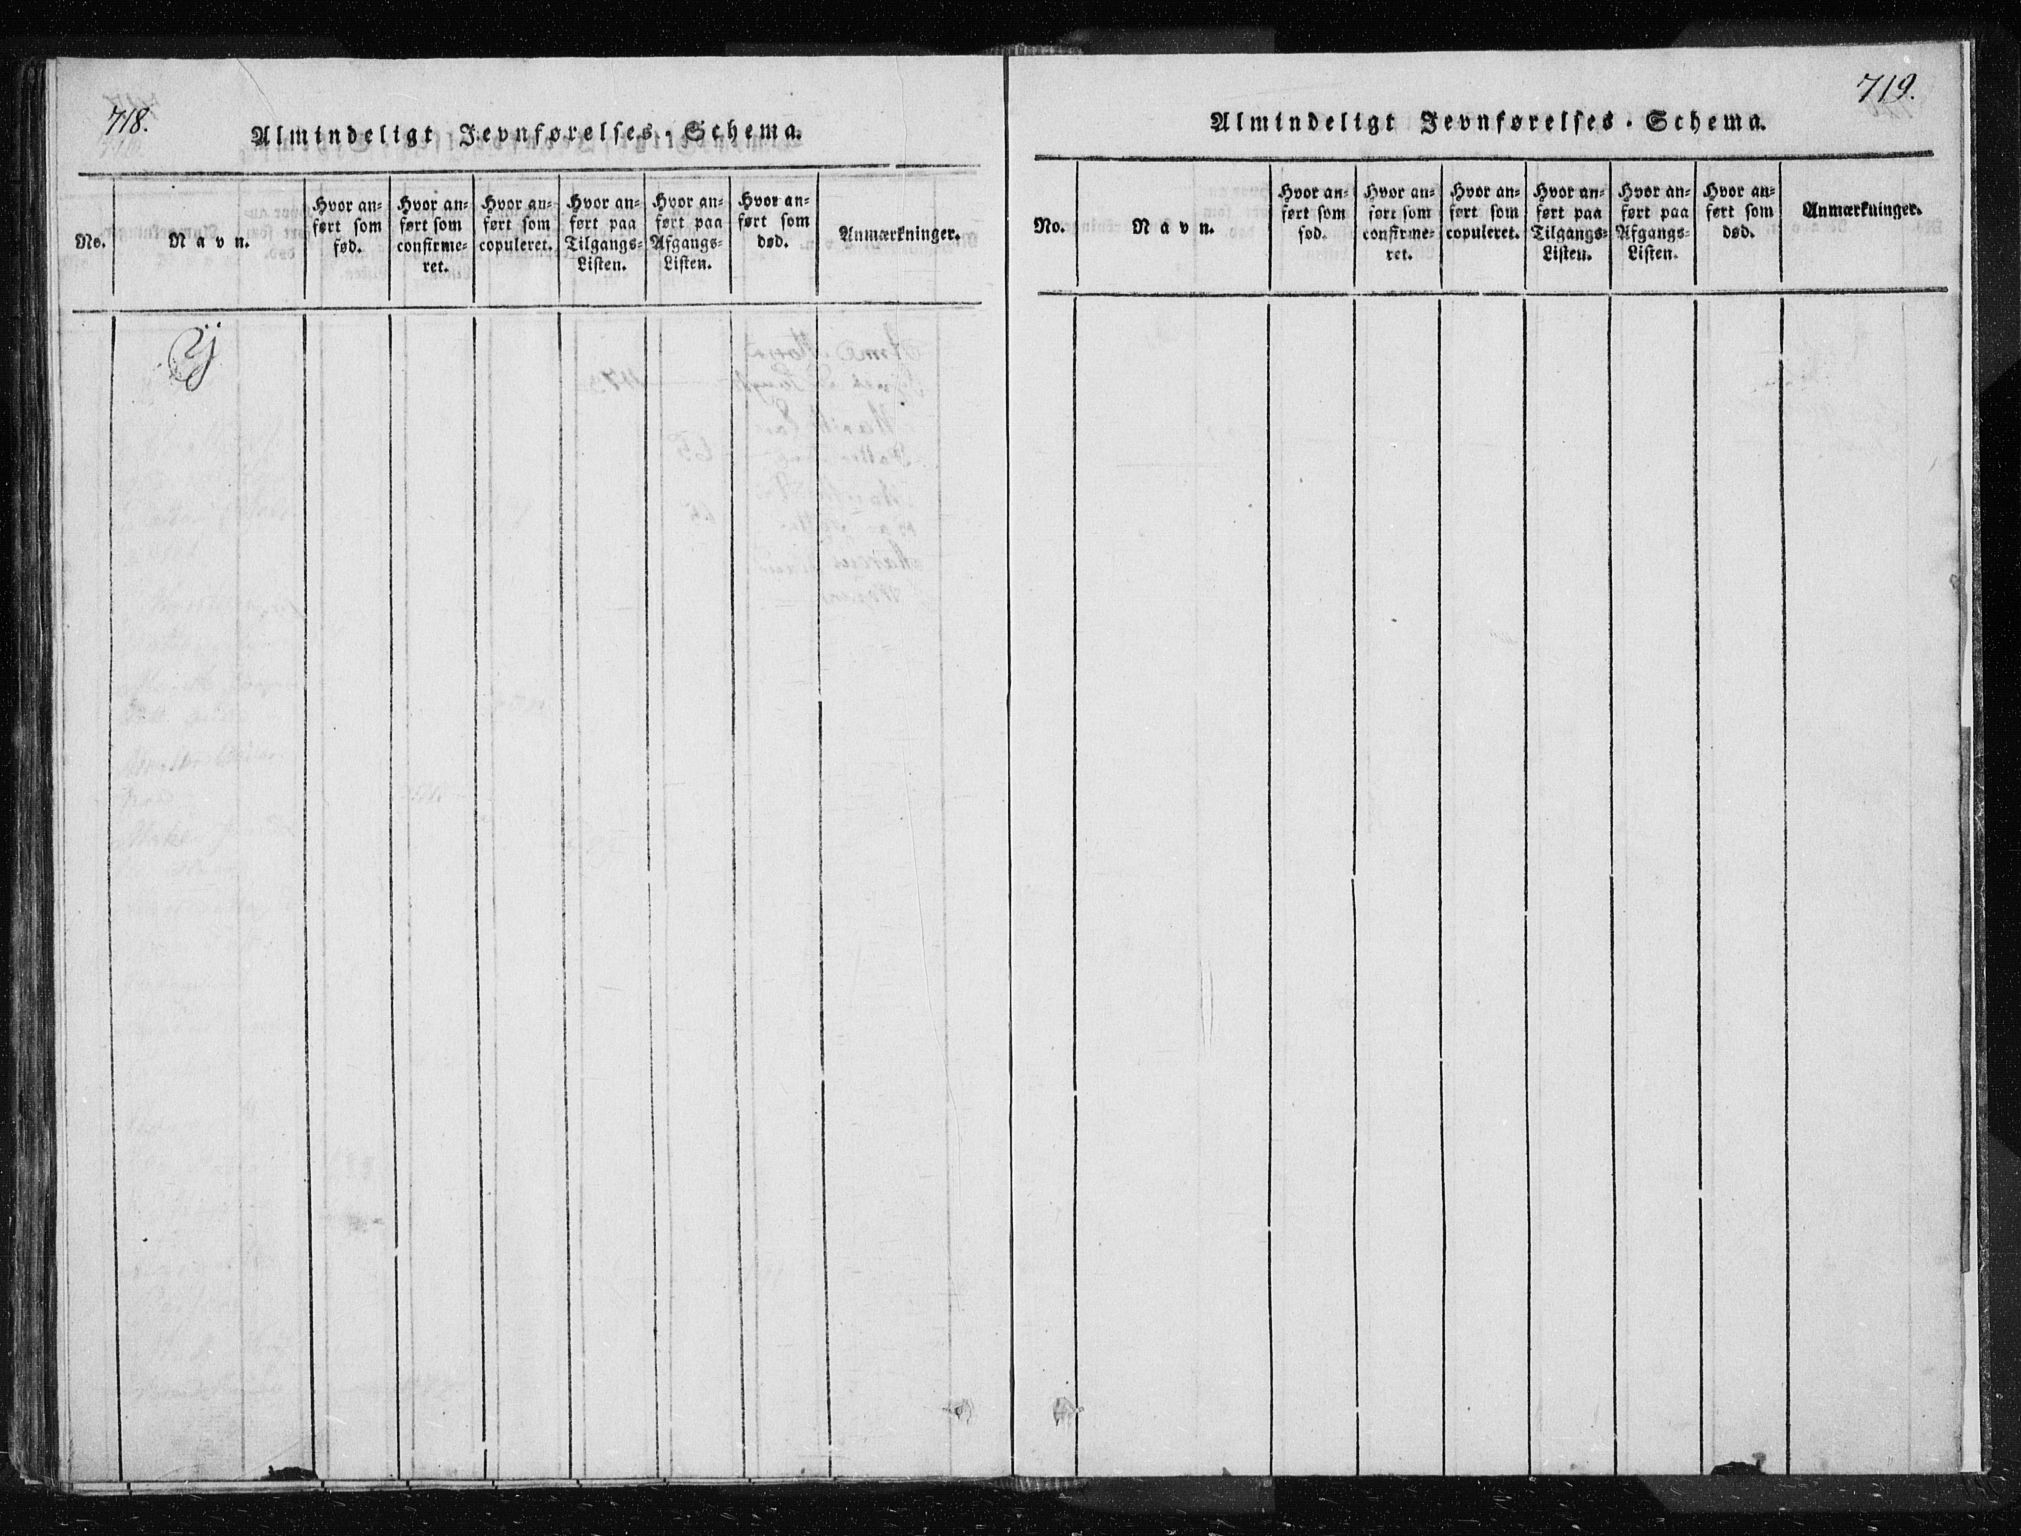 718.
Almindeligt Jevnførelses-Schema.
No.
Navn.
Hvor an-
ført som
fød.
Hvor an-
ført som
confirme-
ret.
Hvor an-
ført som
copuleret.
Hvor an-
ført paa
Tilgangs-
Listen.
Hvor an-
ført paa
Afgangs-
Listen.
Hvor an-
ført som
død.
Anmærkninger.
Y
719.
Almindeligt Jevnførelses-Schema.
No.
Navn.
Hvor an-
ført som
fød.
Hvor an-
ført som
confirme-
ret.
Hvor an-
ført som
copuleret.
Hvor an-
ført paa
Tilgangs-
Listen.
Hvor an-
ført paa
Afgangs-
Listen.
Hvor an-
ført som
død.
Anmærkninger.